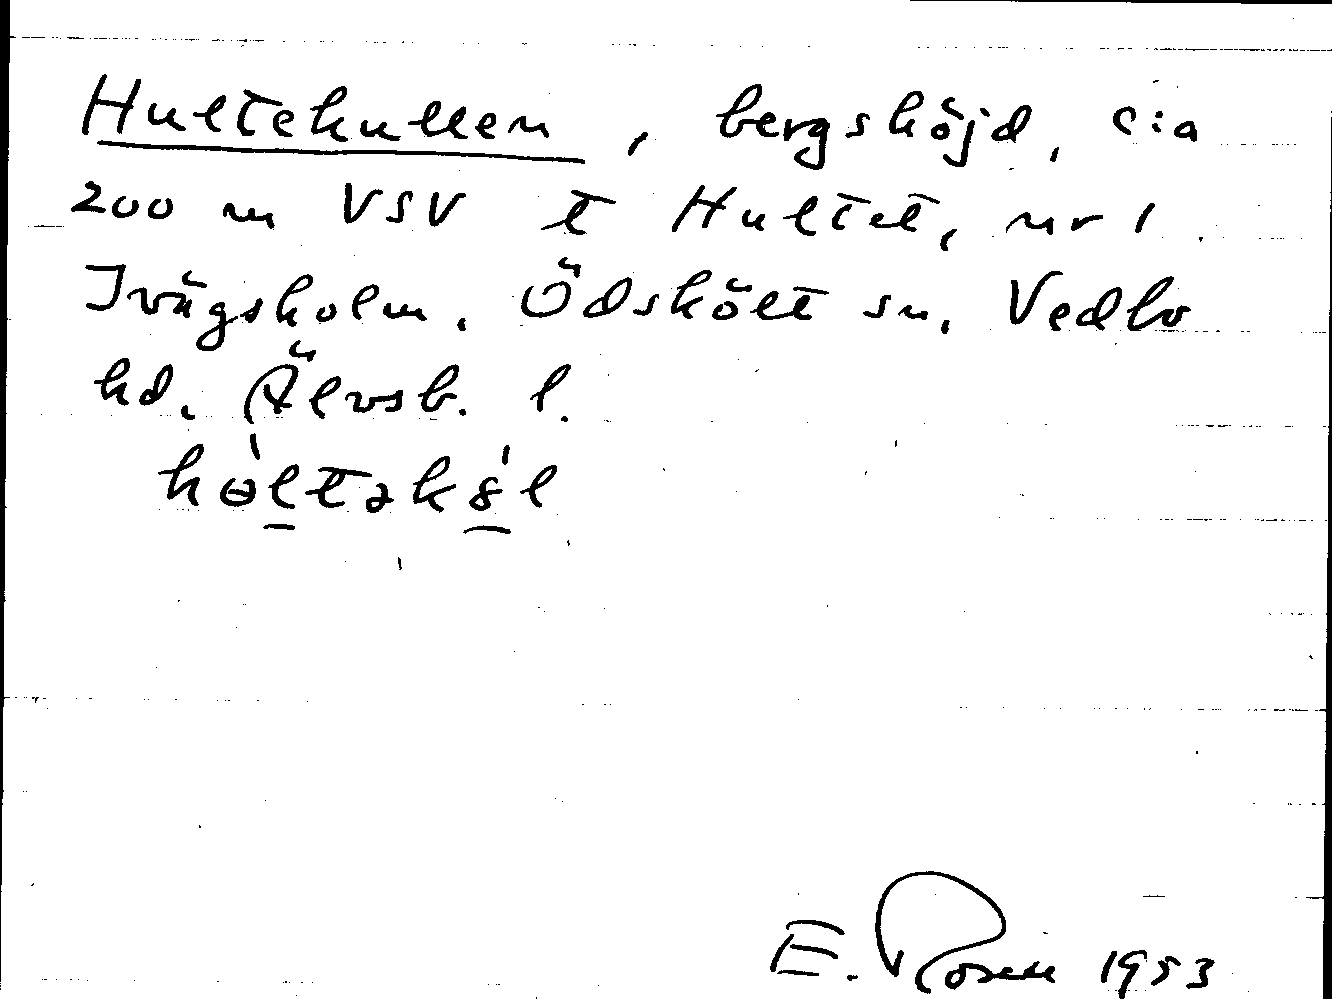 Hultekullen, bergshöjd, c:a
200 m VSV t Hultet, nr 1
Ivägsholm. Ödskölt sn, Vedbo
hd. Älvsb. l.
E. Rosen 1953